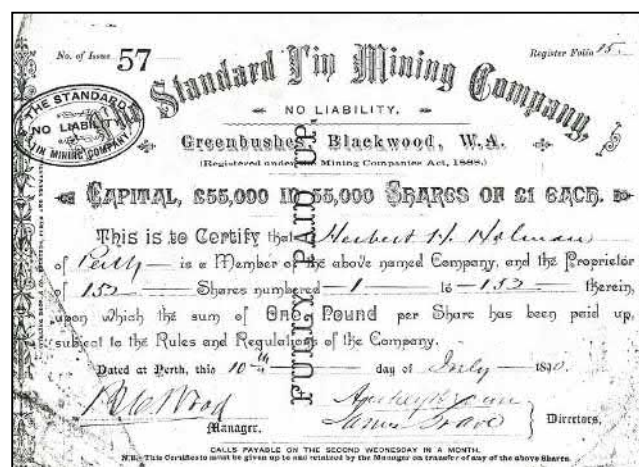 No. of Issue 57
Register Folio 15
The Standard Tin Mining Company,
THE STANDARD
NO LIABILITY
TIN MINING COMPANY
NO LIABILITY.
Greenbushes, Blackwood, W.A.
(Registered under the Mining Companies Act, 1888.)
CAPITAL, £55,000 IN 55,000 SHARES OF £1 EACH.
This is to Certify that Herbert H. Holman
of Perth is a Member of the above named Company, and the Proprietor
of 153 Shares numbered 1 to 153 therein,
upon which the sum of One Pound per Share has been paid up,
subject to the Rules and Regulations of the Company.
FULLY PAID UP.
Dated at Perth, this 10th day of July 1890.
Wood
James Grave
Manager.
Directors.
CALLS PAYABLE ON THE SECOND WEDNESDAY IN A MONTH.
N.B.-This Certificate must be given up to and retained by the Manager on transfer of any of the above Shares.